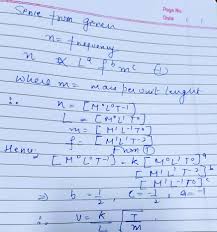 Page No
Date
Sence from given
n = frequency
n ∝ L^a f^b m^c (1)
where m = mass per unit lenght
∴ n = [M⁰L⁰T-1]
L = [M⁰L¹T⁰]
m = [M¹L-1T⁰]
f = [M¹L¹T-2]
Hence from (1)
[M⁰L⁰T-1] = k [M⁰L¹T⁰]^a
[M¹L¹T-2]^b
[M¹L-1T⁰]^c
⇒ b = 1/2, c = -1/2, a = -1
∴ v = k/L √T/m